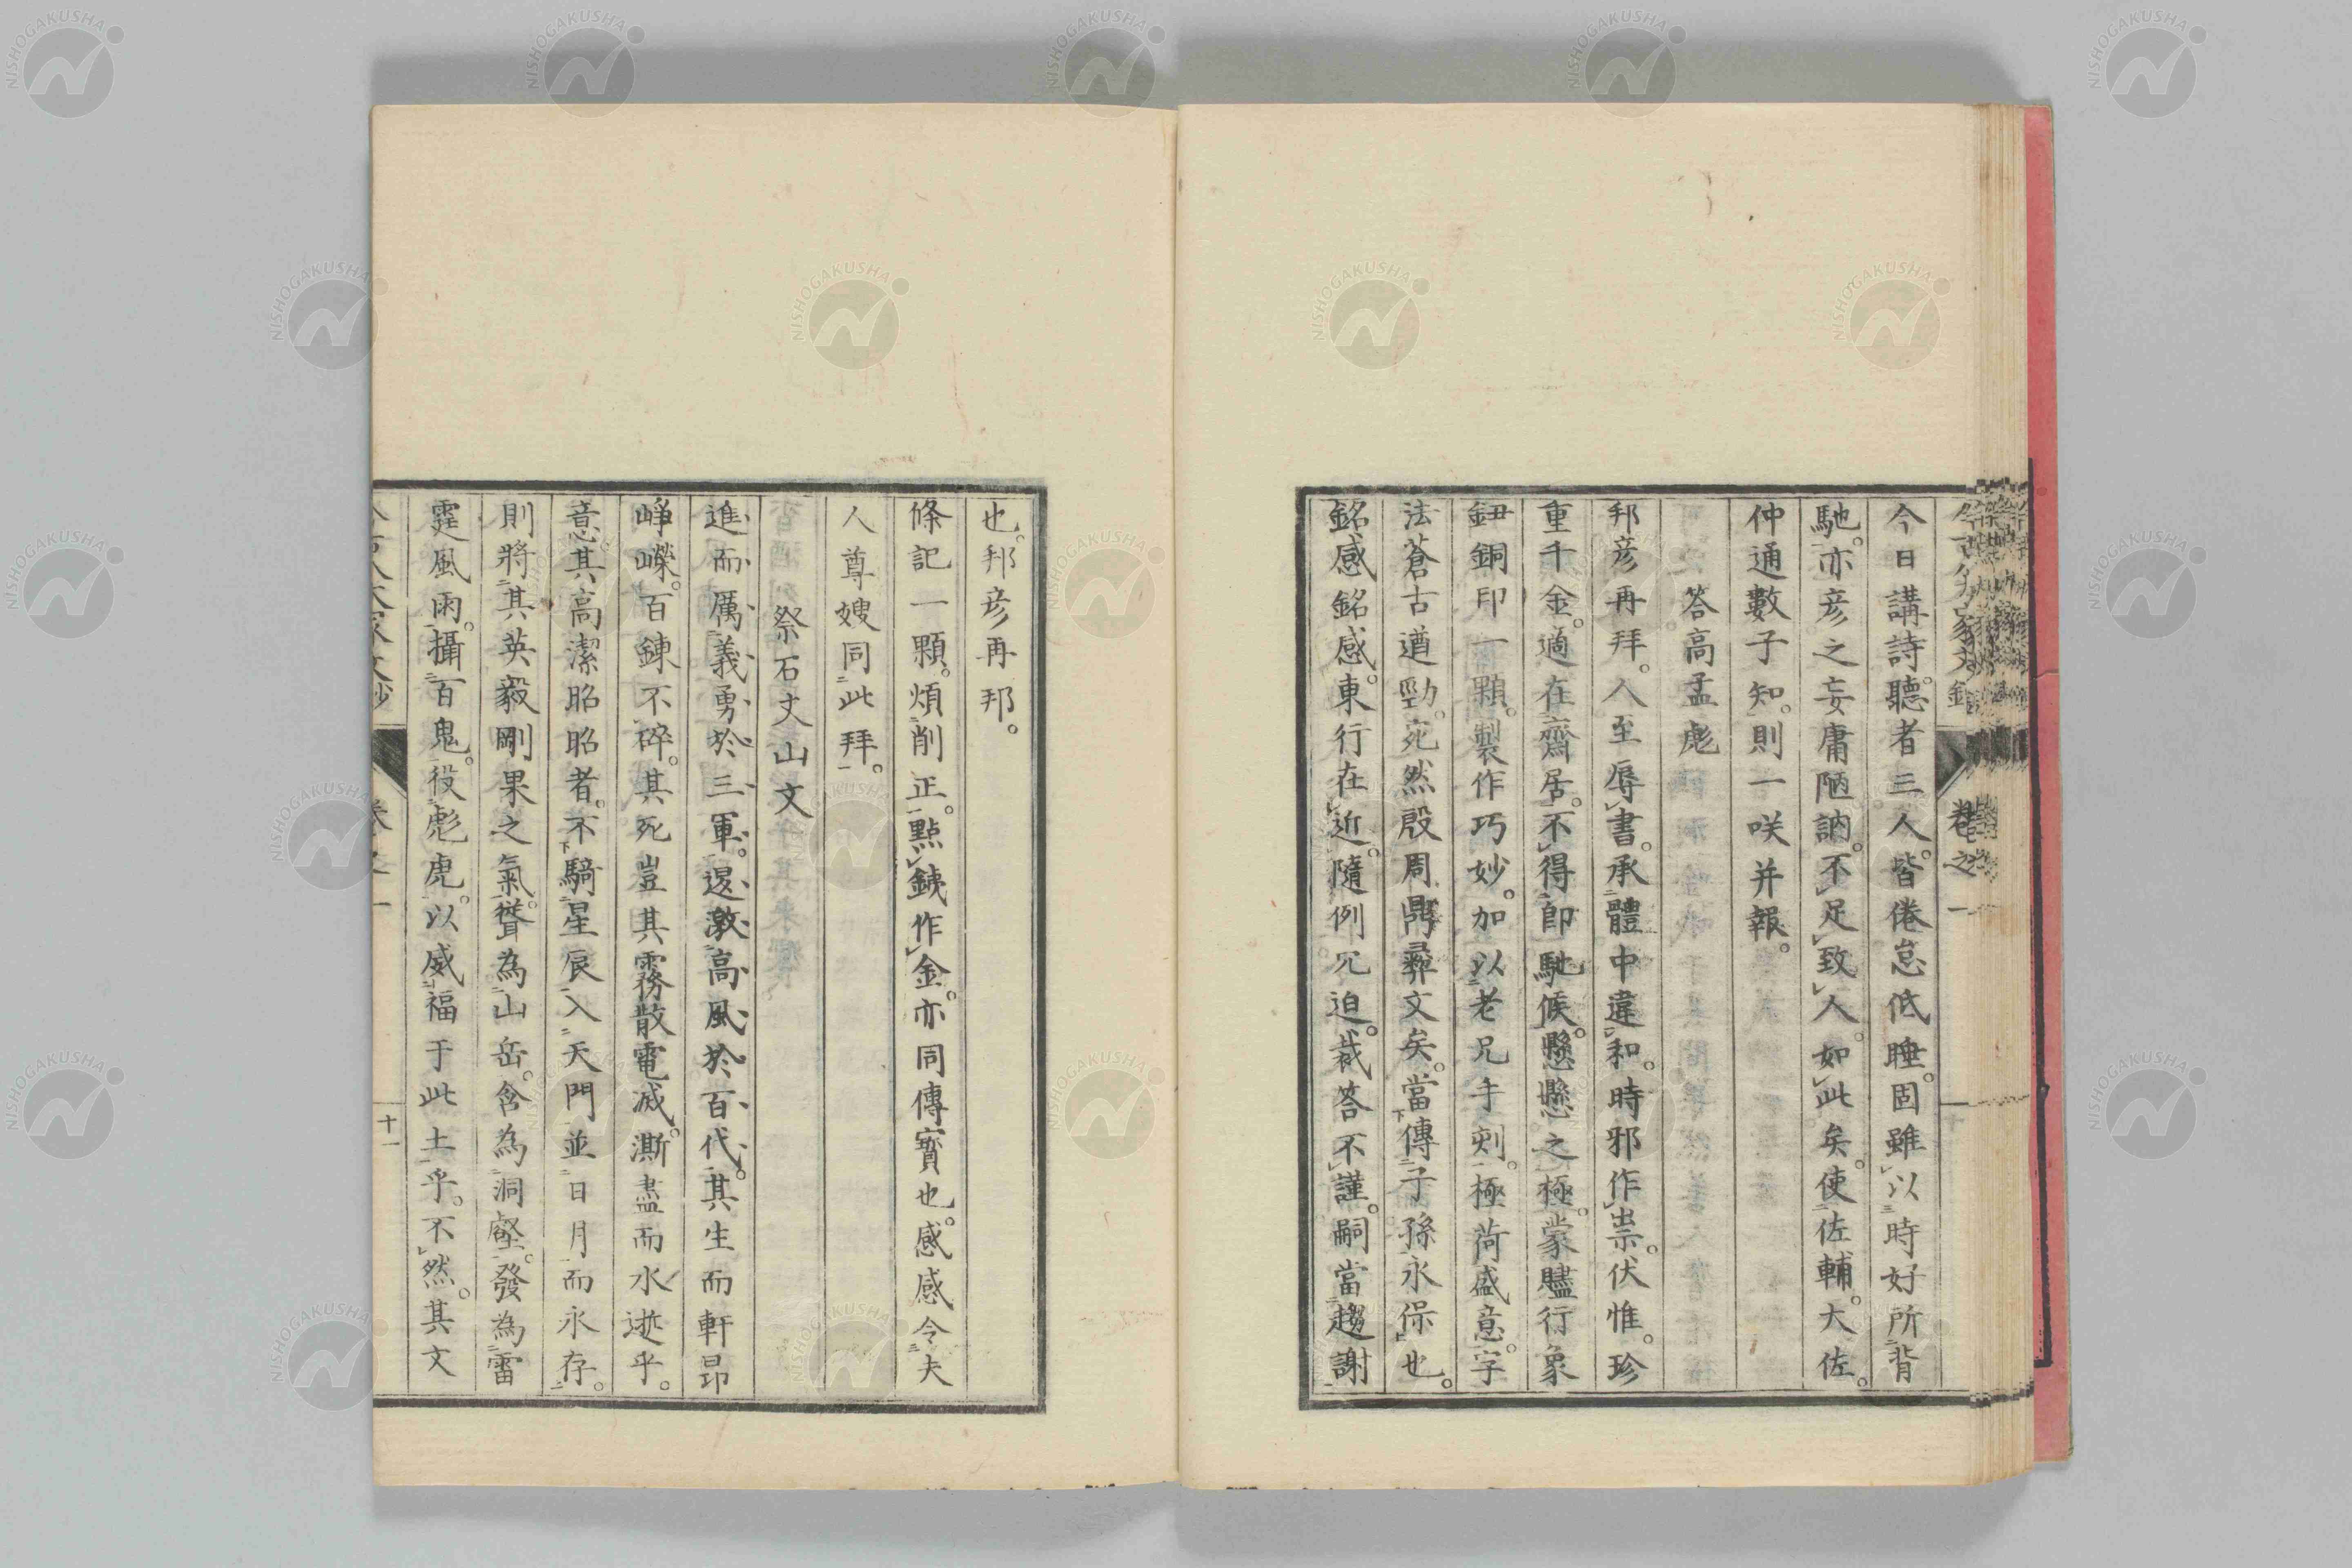 今日講詩。聽者三人。皆倦怠低睡。固雖以時好所背
馳。亦彦之妄庸陋訥。不足致人如此矣。使佐輔。大佐。
仲通數子知。則一咲并報。
答高孟彪
邦彦再拜。人至辱書。承體中違和。時邪作祟。伏惟。珍
重千金。適在齋居。不得即馳候。懸懸之極。蒙贐行象
鈕銅印一顆。製作巧妙。加以老兄手刻。極荷盛意。字
法蒼古遒勁。宛然殷周鼎彝文矣。當傳子孫永保也。
銘感銘感。東行在近。隨例冗迫。裁答不謹。嗣當趨謝
也。邦彦再邦。
條記一顆。煩削正。一點鐵作金。亦同傳寶也。感感令夫
人尊嫂同此拜。
祭石丈山文
進而厲義勇於三軍。退激高風於百代。其生而軒昂
崢嶸。百鍊不碎。其死豈其霧散電滅。澌盡而水逝乎。
意其高潔昭昭者。不騎星辰入天門並日月而永存。
則將其英毅剛果之氣。聳為山岳。含為洞壑。發為雷
霆風雨。攝百鬼。役彪虎。以威福于此土乎。不然。其文
卷之一
十一
卷之一
NISHOGAKUSHA